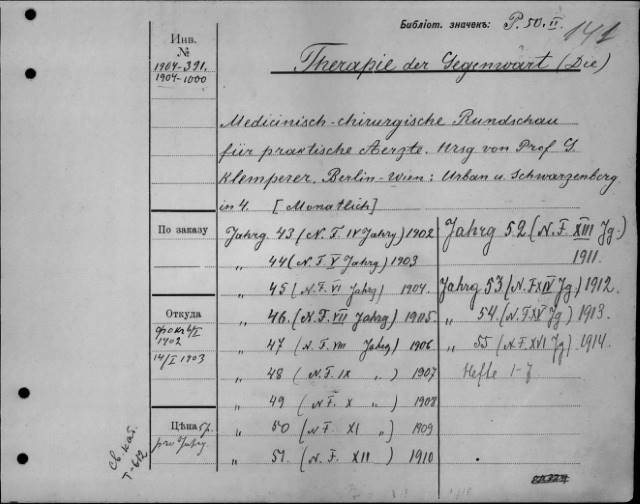 Библіот. значекъ: P. 50. II.
141
Инв.
№
1904-391.
1904-1000
Therapie der Gegenwart (Die)
Medicinisch-chirurgische Rundschau
für praktische Aerzte. Hrsg von Prof. G.
Klemperer. Berlin-Wien: Urban u. Schwarzenberg.
in 4. [Monatlich]
По заказу
Jahrg. 43 (N. F. IV Jahrg) 1902
„ 44 (N. F. V Jahrg) 1903
„ 45 (N. F. VI Jahrg) 1904.
„ 46. (N. F. VII Jahrg) 1905
„ 47 (N. F. VIII Jahrg) 1906
„ 48 (N. F. IX „ ) 1907
„ 49 (N. F. X „ ) 1908
„ 50 (N. F. XI „ ) 1909
„ 51. (N. F. XII ) 1910
Jahrg 52 (N. F. XIII Jg.)
1911.
Jahrg 53 (N. F. XIV Jg.) 1912.
„ 54. (N. F. XV Jg) 1913.
„ 55 (N. F. XVI Jg) 1914.
Hefte 1-7
Откуда
1902
14/I 1903
Цѣна
pro Jahrg.
Св. кат.
Т-612